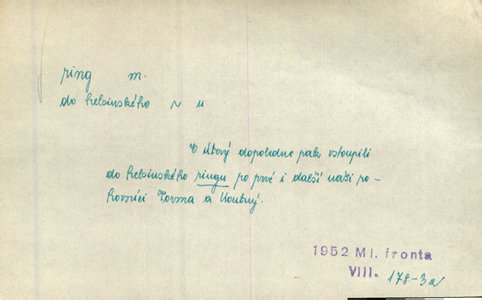 ring m.
do helsinského ~ u
V úterý dopoledne pak vstoupili
do helsinského ringu po prvé i další naši po-
hovníci Torma a Koutný.
1952 Ml. fronta
VIII. 178-3a